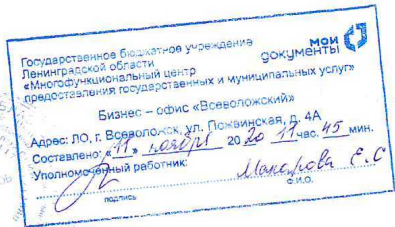 Государственное бюджетное учреждение
Ленинградской области
«Многофункциональный центр
предоставления государственных и муниципальных услуг»
мои
документы
Бизнес – офис «Всеволожский»
Адрес: ЛО, г. Всеволожск, ул. Пожвинская, д. 4А
Составлено: «11» ноября 2020 11 час. 45 мин.
Уполномоченный работник:
Макарова Е.С
подпись
Ф.И.О.